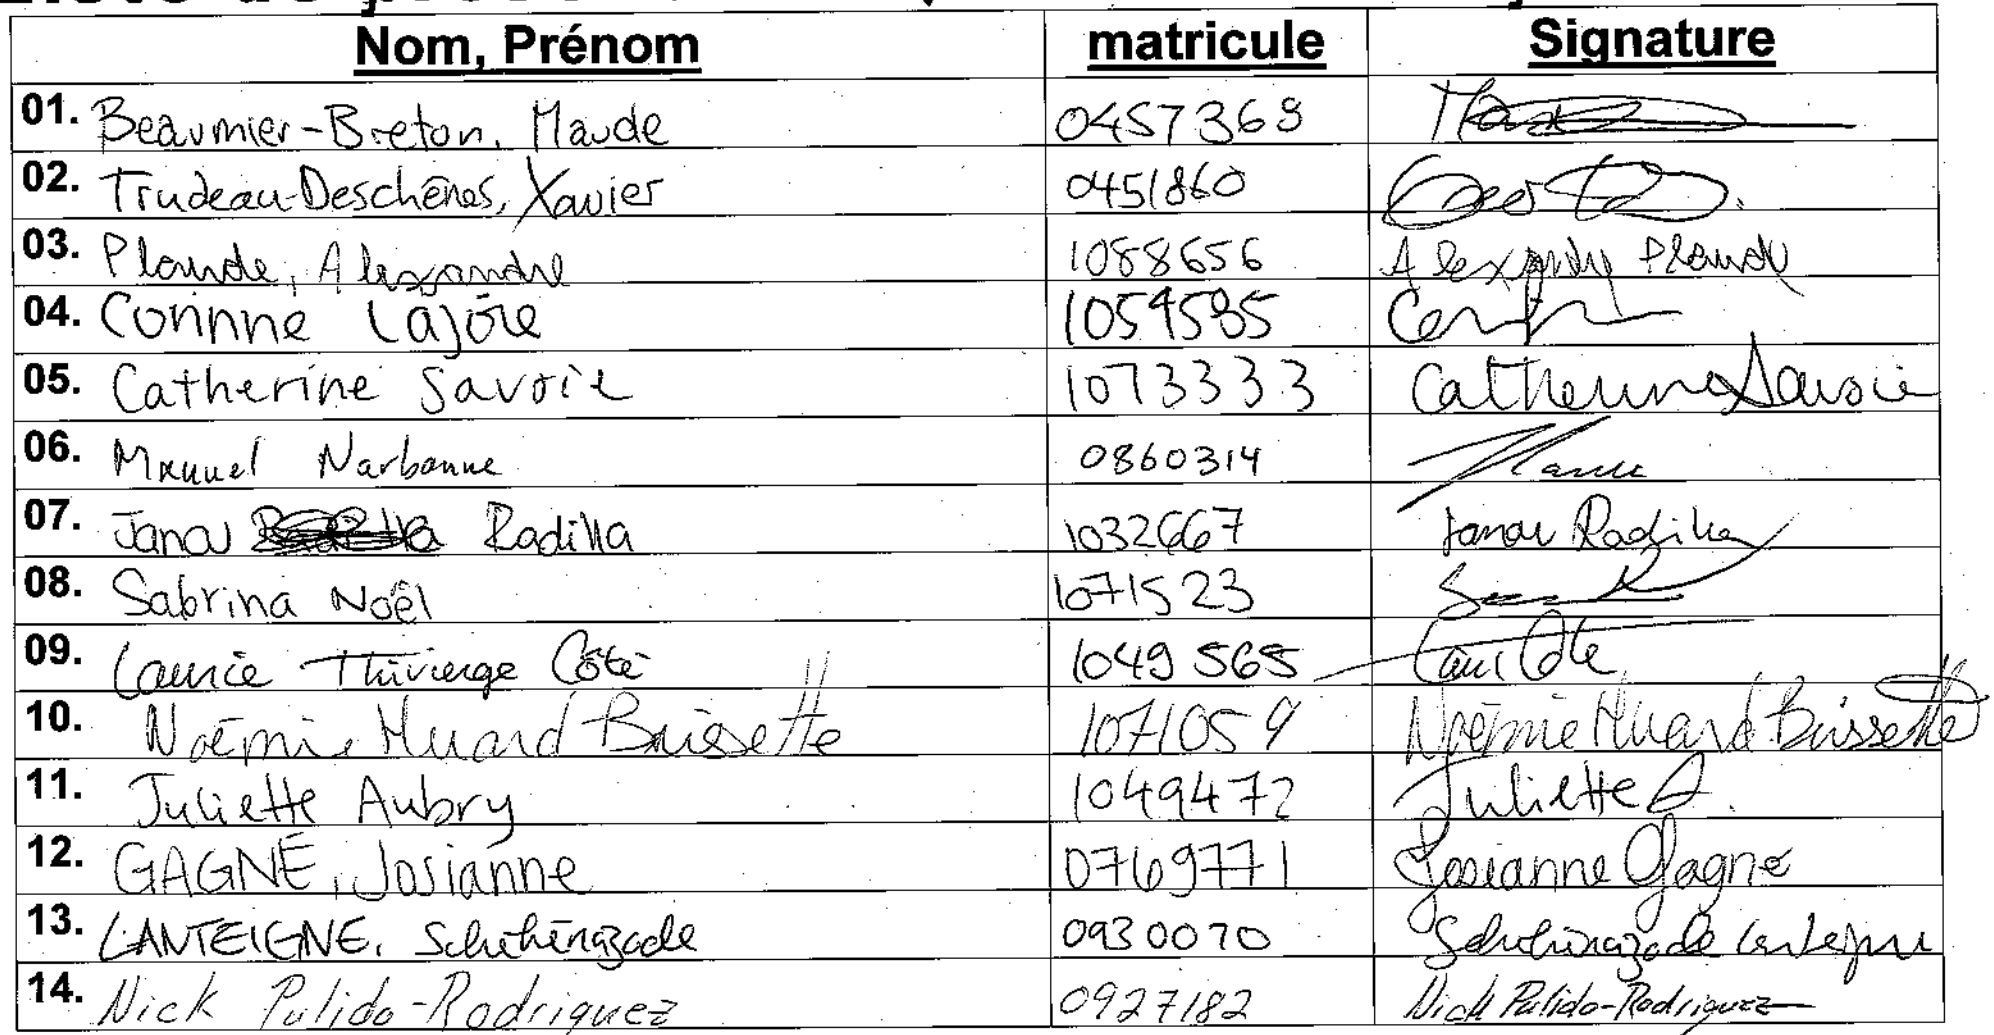 Nom, Prénom matricule Signature
01. Beaumier-Breton, Maude 0457369
02. Trudeau-Deschênes, Xavier 0451860
03. Plaude, Alexandre 1088656 Alexandre Plaude
04. Corinne Lajoie 1059585
05. Catherine Savoie 1073333 Catherine Savoie
06. Manuel Narbonne 0860314
07. Jana Radilla 1032667 Jana Radilla
08. Sabrina Noël 1071523
09. Laurie Thivierge Côté 1049565
10. Noémie Huard Brissette 1071059 Noémie Huard Brissette
11. Juliette Aubry 1049472 Juliette A.
12. GAGNÉ, Josianne 0769771 Josianne Gagné
13. LANTEIGNE, Schéhérazade 0930070 Schéhérazade
14. Nick Pulido-Rodriguez 0927182 Nick Pulido-Rodriguez